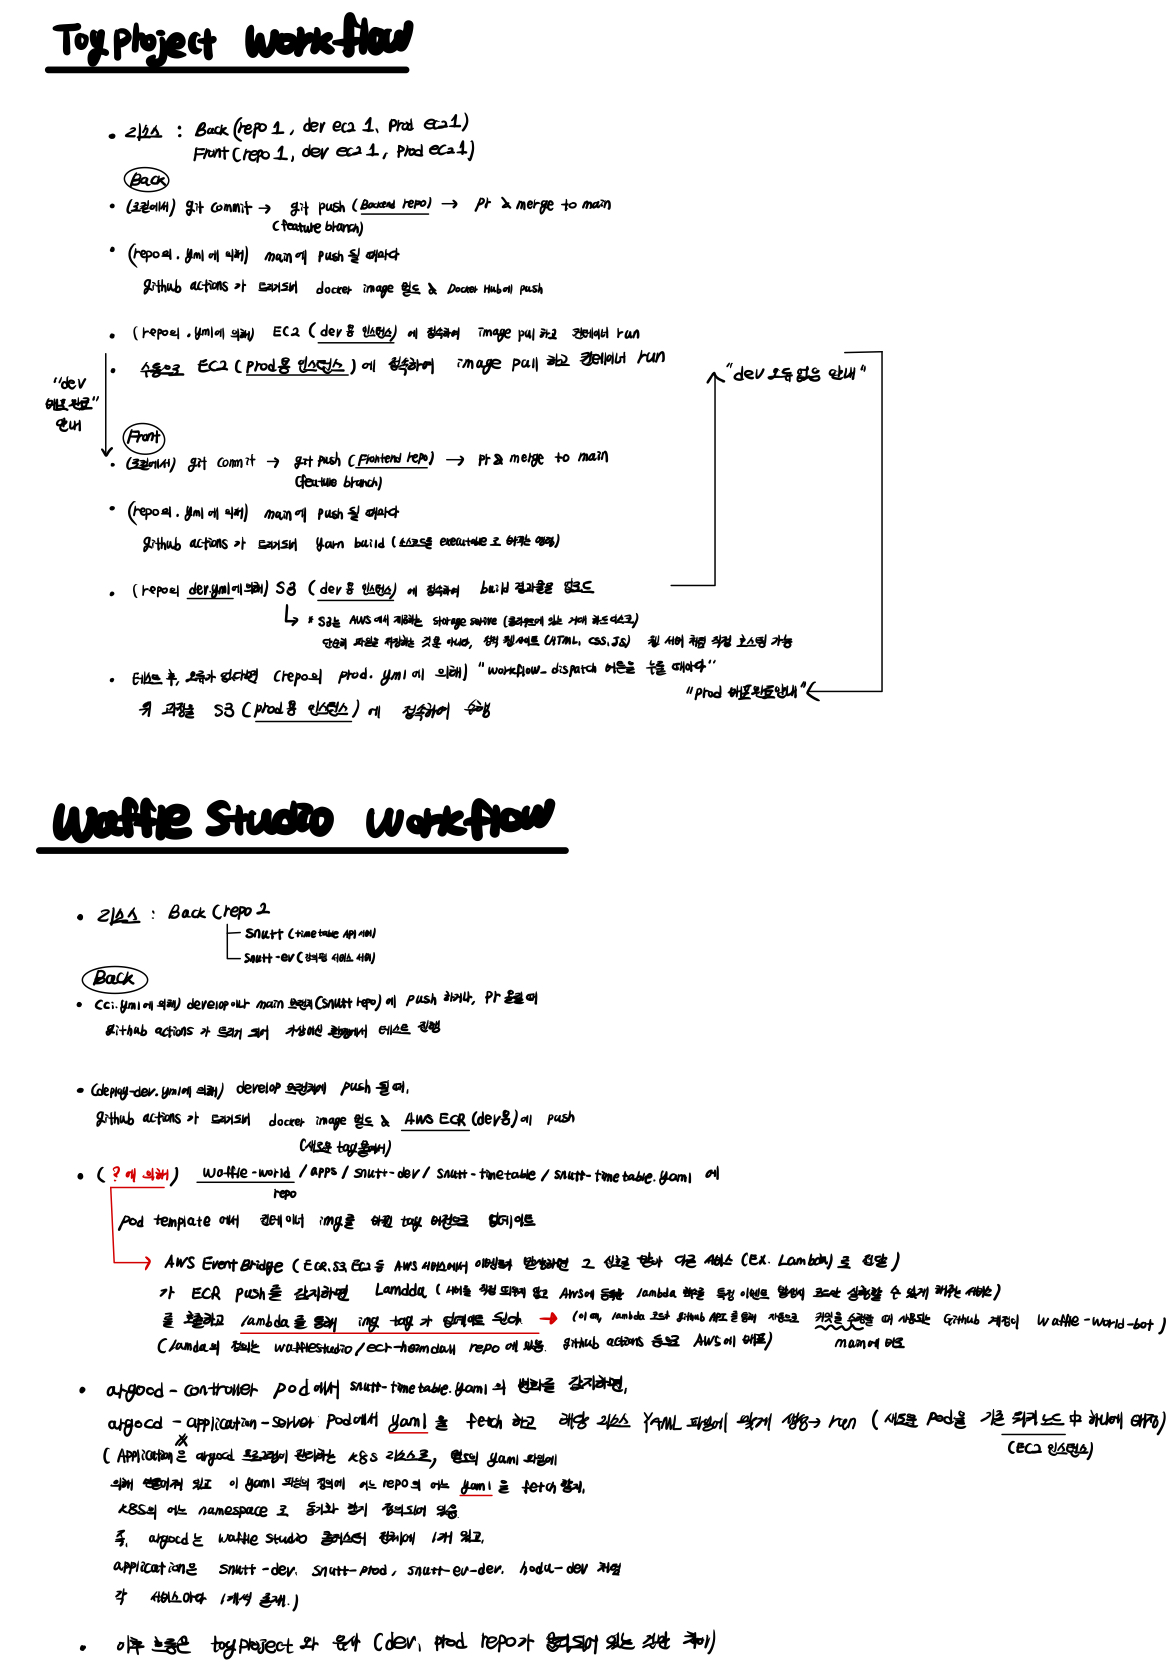 Toy project Workflow
• 리소스 : Back (repo 1, dev ec2 1, Prod ec2 1)
Front (repo 1, dev ec2 1, prod ec2 1)
Back
• (로컬에서) git commit → git push (Backend repo) → pr & merge to main
(feature branch)
• (repo의 .yml에 의해) main에 push 될 때마다
github actions가 트리거되어 docker image 빌드 & Docker Hub에 push
• (repo의 .yml에 의해) EC2 (dev용 인스턴스) 에 접속하여 image pull 하고 컨테이너 run
• 수동으로 EC2 (prod용 인스턴스) 에 접속하여 image pull 하고 컨테이너 run
"dev
배포 완료"
안내
"dev 오류 없음 안내"
Front
• (로컬에서) git commit → git push (Frontend repo) → pr & merge to main
(feature branch)
• (repo의 .yml에 의해) main에 push 될 때마다
github actions가 트리거되어 yarn build (소스코드를 executable로 바꾸는 명령)
• (repo의 dev.yml에 의해) S3 (dev용 인스턴스) 에 접속하여 build 결과물을 업로드
* S3는 AWS에서 제공하는 storage serive (클라우드에 있는 거대 하드디스크)
단순히 파일을 저장하는 것뿐 아니라, 정적 웹사이트 (HTML, CSS, JS) 웹 서버 처럼 직접 호스팅 가능
• 테스트 후, 오류가 없다면 (repo의 prod.yml에 의해) "workflow_dispatch 버튼을 누를 때마다"
"prod 배포 완료 안내"
위 과정을 S3 (prod용 인스턴스) 에 접속하여 수행
Waffle Studio Workflow
• 리소스 : Back (repo 2
snutt (timetable API 서버)
snutt-ev (강의평 서비스 서버)
Back
• (ci.yml에 의해) develop이나 main 브랜치(snutt repo)에 push 하거나, pr 올릴 때
github actions가 트리거 되어 가상머신 환경에서 테스트 진행
• (deploy-dev.yml에 의해) develop 브랜치에 push 될 때,
github actions가 트리거되어 docker image 빌드 & AWS ECR (dev용)에 push
(새로운 tag 붙여서)
• (?에 의해) waffle-world / apps / snutt-dev / snutt-timetable / snutt-timetable.yaml 에
repo
pod template 에서 컨테이너 img를 바뀐 tag 버전으로 업데이트
AWS EventBridge (ECR, S3, EC2 등 AWS 서비스에서 이벤트가 발생하면 그 신호를 받아 다른 서비스 (EX. Lambda)로 전달)
가 ECR push를 감지하면 Lamdda (서버를 직접 띄우지 않고 AWS에 등록한 lambda 함수를 특정 이벤트 발생시 코드만 실행할 수 있게 해주는 서비스)
를 호출하고 lambda를 통해 img tag가 업데이트 된다 → (이 때, lambda 코드가 github API를 통해 자동으로 커밋을 수행할 때 사용되는 GitHub 계정이 waffle-world-bot)
(lamda의 정의는 wafflestudio/ecr-heimdall repo에 있음. github actions 등으로 AWS에 배포) main에 바로
• argocd-controller pod에서 snutt-timetable.yaml의 변화를 감지하면,
argocd-application-server pod에서 yaml을 fetch 하고 해당 리소스 YAML 파일에 맞게 생성 → run (새로운 pod을 기존 워커 노드 中 하나에 배치)
(EC2 인스턴스)
(Application은 argocd 프로그램이 관리하는 K8S 리소스로, 별도의 yaml 파일에
의해 만들어져 있고 이 yaml 파일의 정의에 어느 repo의 어느 yaml을 fetch 할지,
K8S의 어느 namespace로 동기화 할지 정의되어 있음
즉, argocd는 waffle studio 클러스터 전체에 1개 있고,
application은 snutt-dev, snutt-prod, snutt-ev-dev, hodu-dev 처럼
각 서비스마다 1개씩 존재.)
• 이후 흐름은 toy project와 유사 (dev, prod repo가 분리되어 있는 것만 차이)